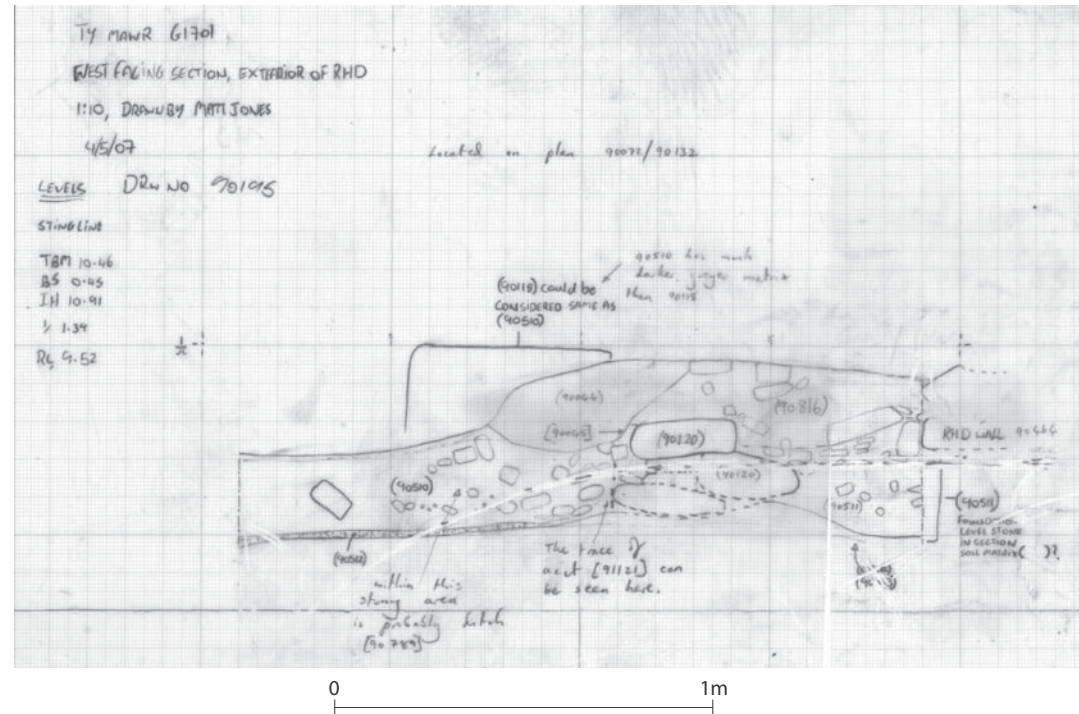 TY MAWR G1701
WEST FACING SECTION, EXTERIOR OF RHD
1:10, DRAWN BY MATT JONES
4/5/07
Located on plan 90072/90132
LEVELS DRW NO
STING LINE
TBM 10.46
BS 0.45
IH 10.91
1.39
RL 9.52
90510 has much
darker, greyer matrix
than 90115
(90115) could be
CONSIDERED SAME AS
(90510)
(90816)
(90120)
RHD WALL
(90120)
(90510)
(90511)
(90511)
LEVEL STONE
IN SECTION
SOIL MATRIX( )?
The trace of
[91121] can
be seen here.
within this
stoney area
is probably
[90789]
0 1m